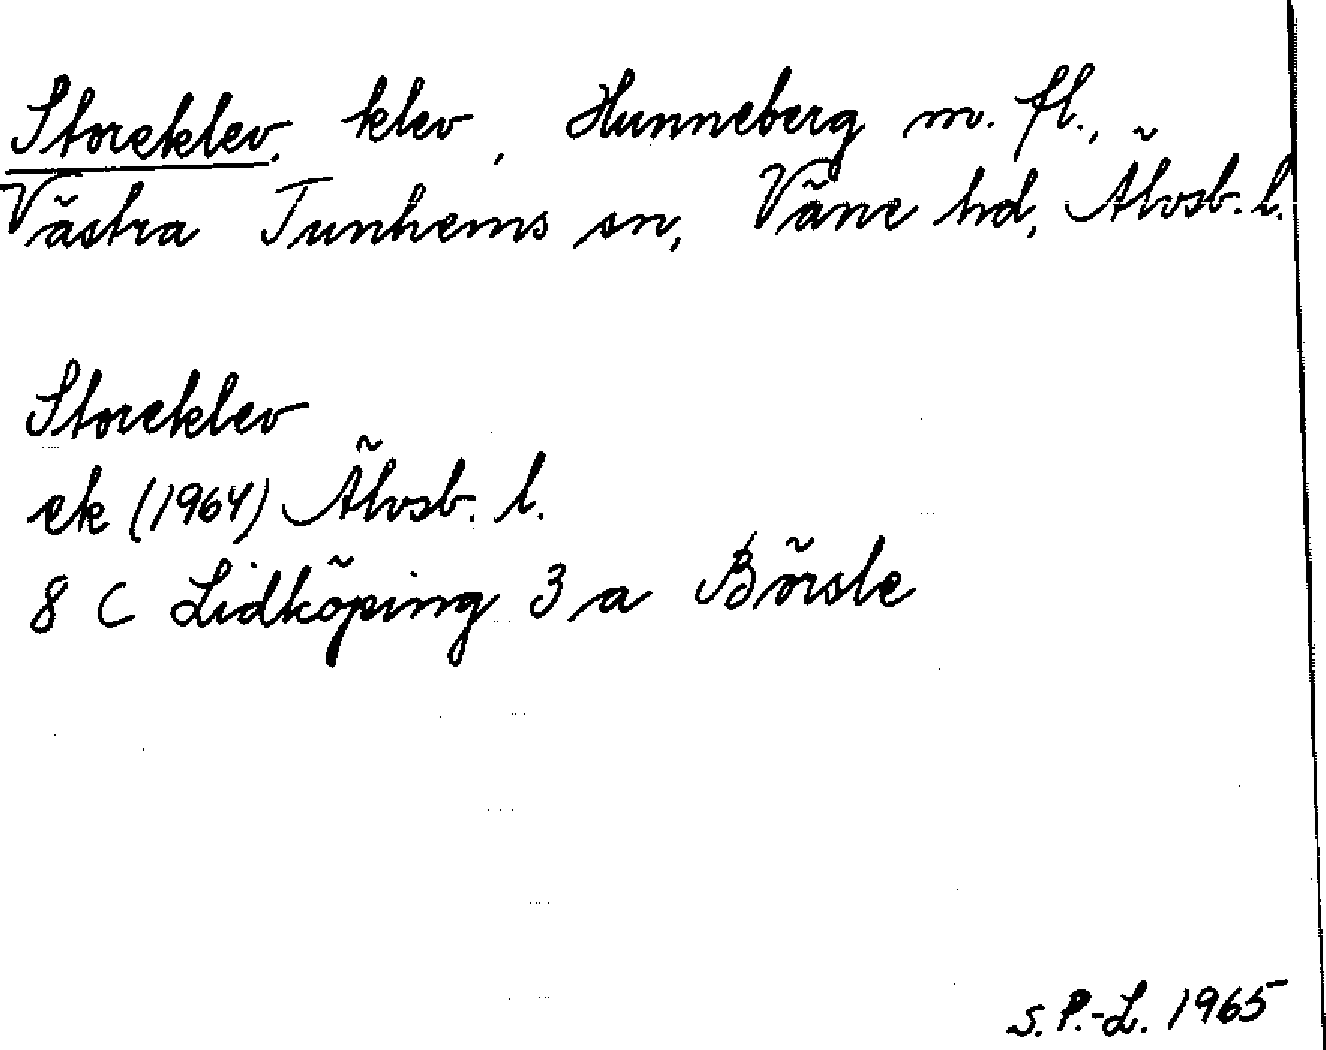 Storeklev, klev, Hunneberg m. fl.,
Västra Tunhems sn, Väne hd, Älvsb. l.
Storeklev
ek (1964) Älvsb. l.
8 C Lidköping 3 a Börsle
S. P.-L. 1965